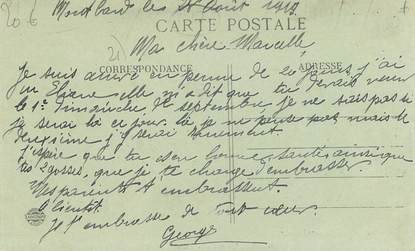 les 28 Août 1919
CARTE POSTALE
Ma chère Marcelle,
CORRESPONDANCE ADRESSE
Je suis arrivé en perme de 20 jours, j'ai
vu Eliane elle m'a dit que tu devais venir
le 1er Dimanche de septembre je ne sais pas si
je serai là ce jour là je ne pense pas mais le
deuxième j'y serai surement.
J'espère que tu es en bonne santé ainsi que
tes 2 gosses, que je te charge d'embrasser.
Mes parents t'embrassent
A bientôt.
Je t'embrasse de tout cœur.
Georges